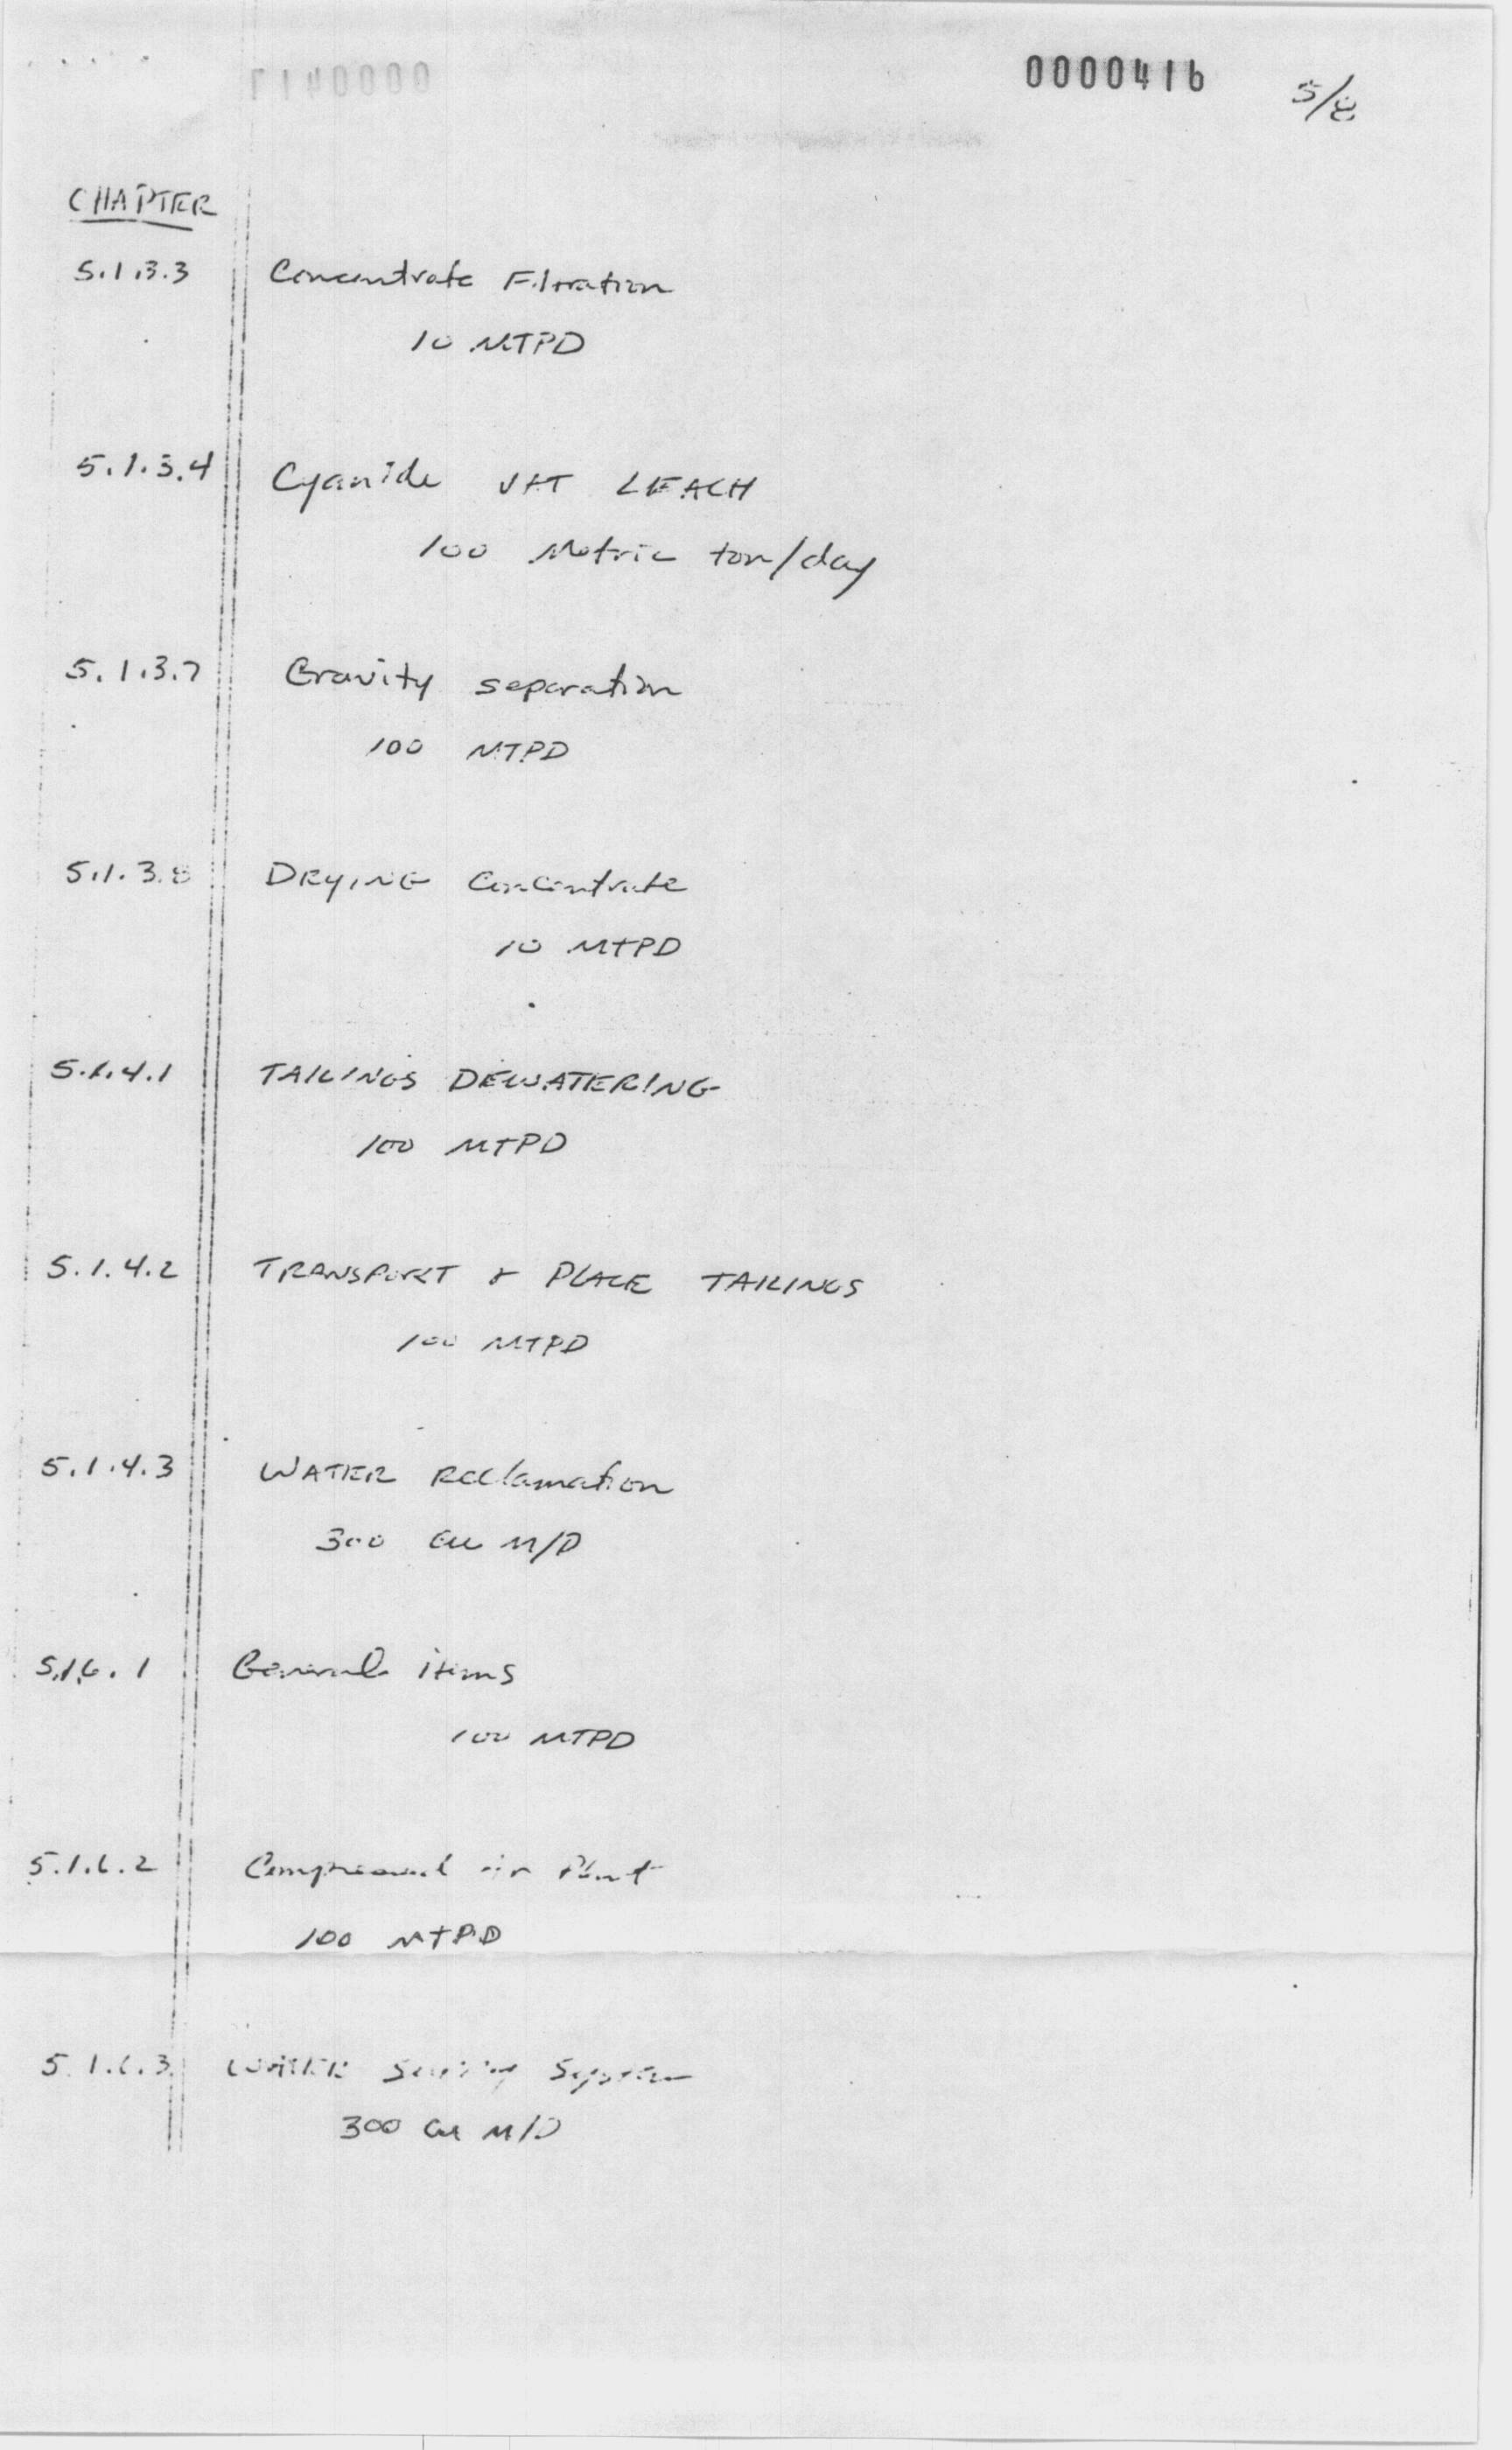 0000416 5/8
CHAPTER
5.1.3.3 Concentrate Filtration
10 MTPD
5.1.3.4 Cyanide VAT LEACH
100 Metric ton/day
5.1.3.7 Gravity separation
100 MTPD
5.1.3.8 DRYING Concentrate
10 MTPD
5.1.4.1 TAILINGS DEWATERING
100 MTPD
5.1.4.2 TRANSPORT & PLACE TAILINGS
100 MTPD
5.1.4.3 WATER Reclamation
300 CU M/D
5.1.6.1 General items
100 MTPD
5.1.6.2 Compressed air Plant
100 MTPD
5.1.6.3 WATER System
300 CU M/D